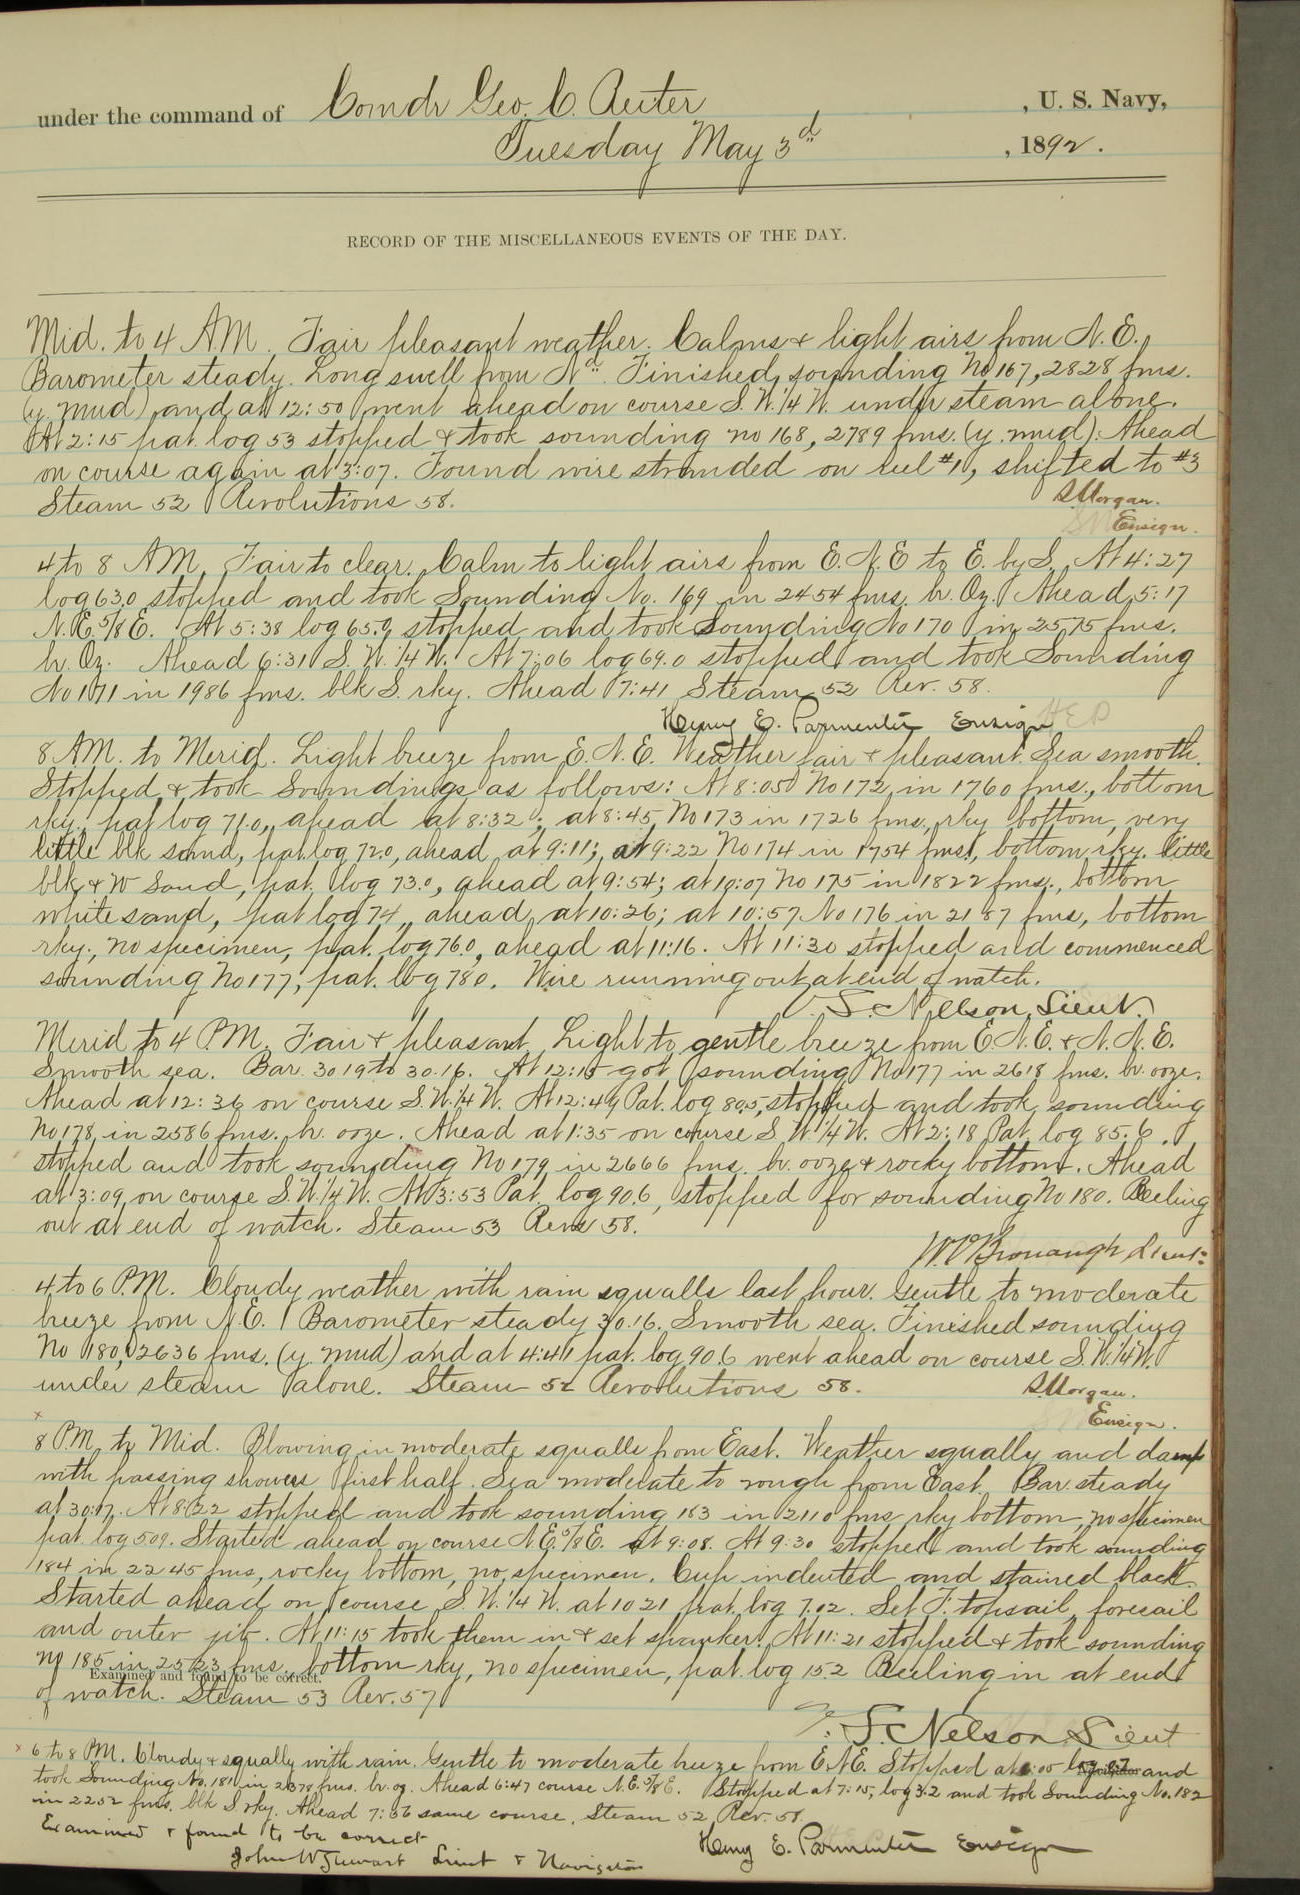 under the command of Comdr Geo. C. Reiter , U. S. Navy,
Tuesday May 3d , 1892.
RECORD OF THE MISCELLANEOUS EVENTS OF THE DAY.
Mid. to 4 A.M. Fair pleasant weather. Calms & light airs from N.E.
Barometer steady. Long swell from Nd. Finished sounding No 167, 2828 fms.
(y. mud) and at 12:50 went ahead on course S.W.1/4 W. under steam alone.
At 2:15 pat. log 53 stopped & took sounding no 168, 2789 fms. (y. mud). Ahead
on course again at 3:07. Found wire stranded on reel #1, shifted to #3
Steam 52 Revolutions 58.
S. Morgan.
Ensign.
4 to 8 A.M. Fair to clear. Calm to light airs from E.N.E to E. by S. At 4:27
log 63.0 stopped and took Sounding No. 169 in 2454 fms. br. Oz. Ahead 5:17
N.E.5/8 E. At 5:38 log 65.0 stopped and took Sounding No 170 in 2575 fms.
br. Oz. Ahead 6:31 S.W.1/4 W. At 7:06 log 69.0 stopped and took Sounding
No 171 in 1986 fms. blk S. rky. Ahead 7:41 Steam 52 Rev. 58.
Henry E. Parmenter Ensign
8 A.M. to Merid. Light breeze from E.N.E. Weather fair & pleasant. Sea smooth.
Stopped & took Soundings as follows: At 8:05 No 172, in 1760 fms., bottom
rky., pat log 71.0, ahead at 8:32; at 8:45, No 173 in 1726 fms, rky bottom, very
little blk sand, pat. log 72.0, ahead at 9:11; at 9:22 No 174 in 1754 fms., bottom rky. little
blk & W Sand, pat. log 73.0, ahead at 9:54; at 10:07 No 175 in 1822 fms., bottom
white sand, pat log 74, ahead at 10:26; at 10:57 No 176 in 2187 fms, bottom
rky., no specimen, pat. log 76.0, ahead at 11:16. At 11:30 stopped and commenced
sounding No 177, pat. log 78.0. Wire running out at end of watch.
V. S. Nelson, Lieut.
Merid to 4 P.M. Fair & pleasant. Light to gentle breeze from E.N.E. & N.N.E.
Smooth sea. Bar. 30.19 to 30.16. At 12:15 got sounding No 177 in 2618 fms. br. ooze.
Ahead at 12:36 on course S.W.1/4 W. At 12:49 Pat. log 80.5, stopped and took sounding
No 178, in 2586 fms. br. ooze. Ahead at 1:35 on course S.W.1/4 W. At 2:18 Pat. log 85.6.
stopped and took sounding No 179 in 2666 fms. br. ooze & rocky bottom. Ahead
at 3:09, on course S.W.1/4 W. At 3:53 Pat. log 90.6, stopped for sounding No 180. Reeling
out at end of watch. Steam 53 Revs 58.
W P Bronaugh Lieut:
4 to 6 P.M. Cloudy weather with rain squalls last hour. Gentle to moderate
breeze from N.E. Barometer steady 30.16. Smooth sea. Finished sounding
No 180, 2636 fms. (y. mud) and at 4:41 pat. log 90.6 went ahead on course S.W.1/4 W.
under steam alone. Steam 52 Revolutions 58.
S. Morgan.
Ensign.
x
8 P.M. to Mid. Blowing in moderate squalls from East. Weather squally and damp
with passing showers first half. Sea moderate to rough from East. Bar. steady
at 30.17. At 8:22 stopped and took sounding 183 in 2110 fms rky bottom, no specimen
pat. log 509. Started ahead on course N.E.5/8 E. at 9:08. At 9:30 stopped and took sounding
184 in 2245 fms, rocky bottom, no specimen. Cup indented and stained black.
Started ahead on course S.W.1/4 W. at 10 21 pat. log 7.02. Set F. topsail, foresail
and outer jib. At 11:15 took them in & set spanker. At 11:21 stopped & took sounding
no 185 in 2523 fms, bottom rky, no specimen, pat. log 15.2 Reeling in at end
Examined and found to be correct.
of watch. Steam 53 Rev. 57
V. S. Nelson, Lieut
x 6 to 8 P.M. Cloudy & squally with rain. Gentle to moderate breeze from E.N.E. Stopped at 6:00 log 97 and
Navigator
took Sounding No. 181 in 2378 fms. br. oz. Ahead 6:47 course N.E.5/8 E. Stopped at 7:15, log 3.2 and took Sounding No. 182
in 2252 fms. blk S rky. Ahead 7:56 same course. Steam 52 Rev. 58.
Examined & found to be correct
Henry E. Parmenter Ensign
John W Stewart Lieut & Navigator